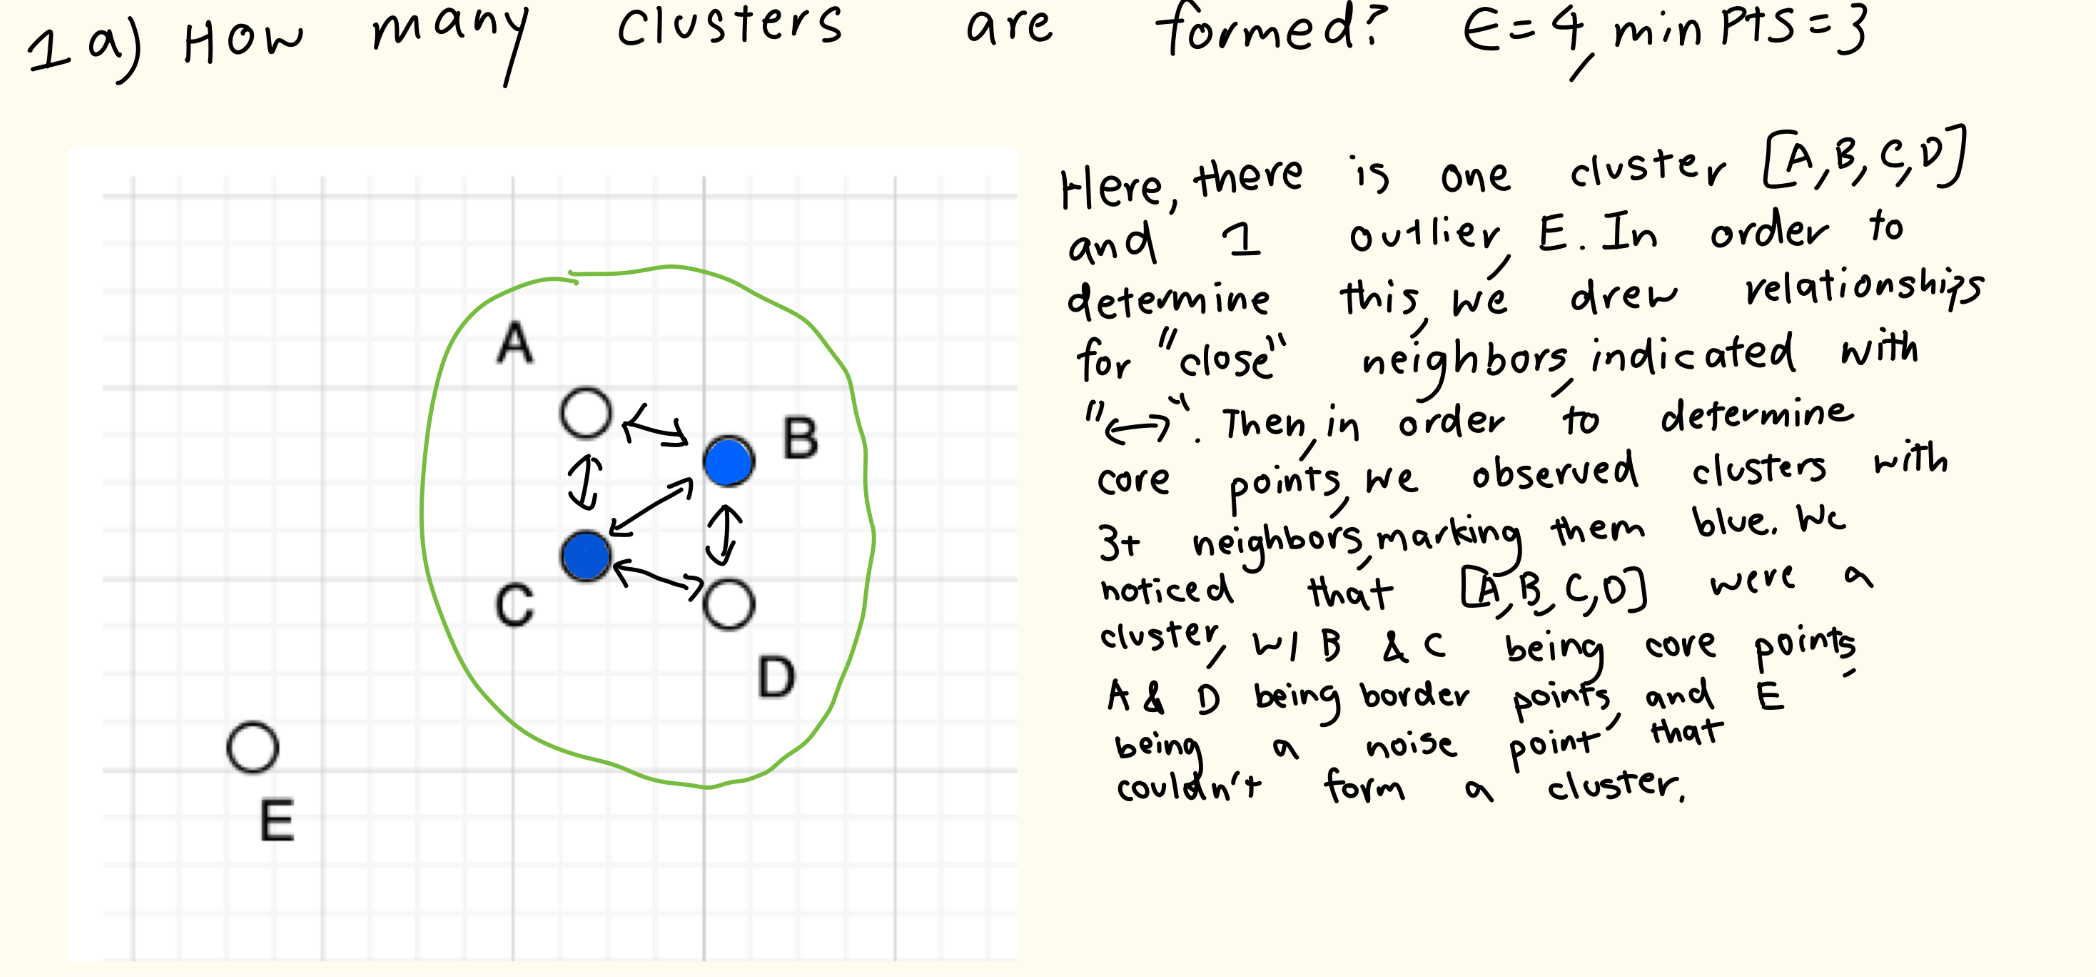 1a) How many clusters are formed? ϵ=4, min Pts=3
Here, there is one cluster [A,B,C,D]
and 1 outlier, E. In order to
determine this, we drew relationships
for "close" neighbors, indicated with
"↔". Then, in order to determine
core points, we observed clusters with
3+ neighbors, marking them blue. We
noticed that [A,B,C,D] were a
cluster, w/ B & C being core points,
A & D being border points, and E
being a noise point that
couldn't form a cluster.
A
B
C
D
E